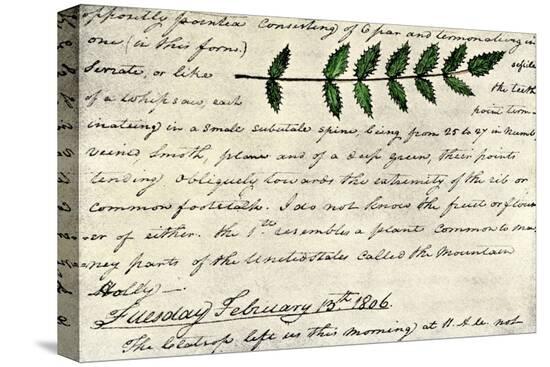 oppositly pointed consisting of 6 par and termonateing in
one (in this form.) sessile
Serrate, or like the teeth
of a whipsaw, each point term-
inateing in a small subulate spine, being from 25 to 27 in numb.
veined, smoth, plane and of a deep green, their points
tending obliquely towards the extremity of the rib or
common footstalk. I do not know the fruit or flow
er of either. the 1st resembles a plant common to ma-
ney parts of the United states called the Mountain
Holly—
Tuesday February 13th 1806.
The Clatsop left us this morning at 11. A.M. not